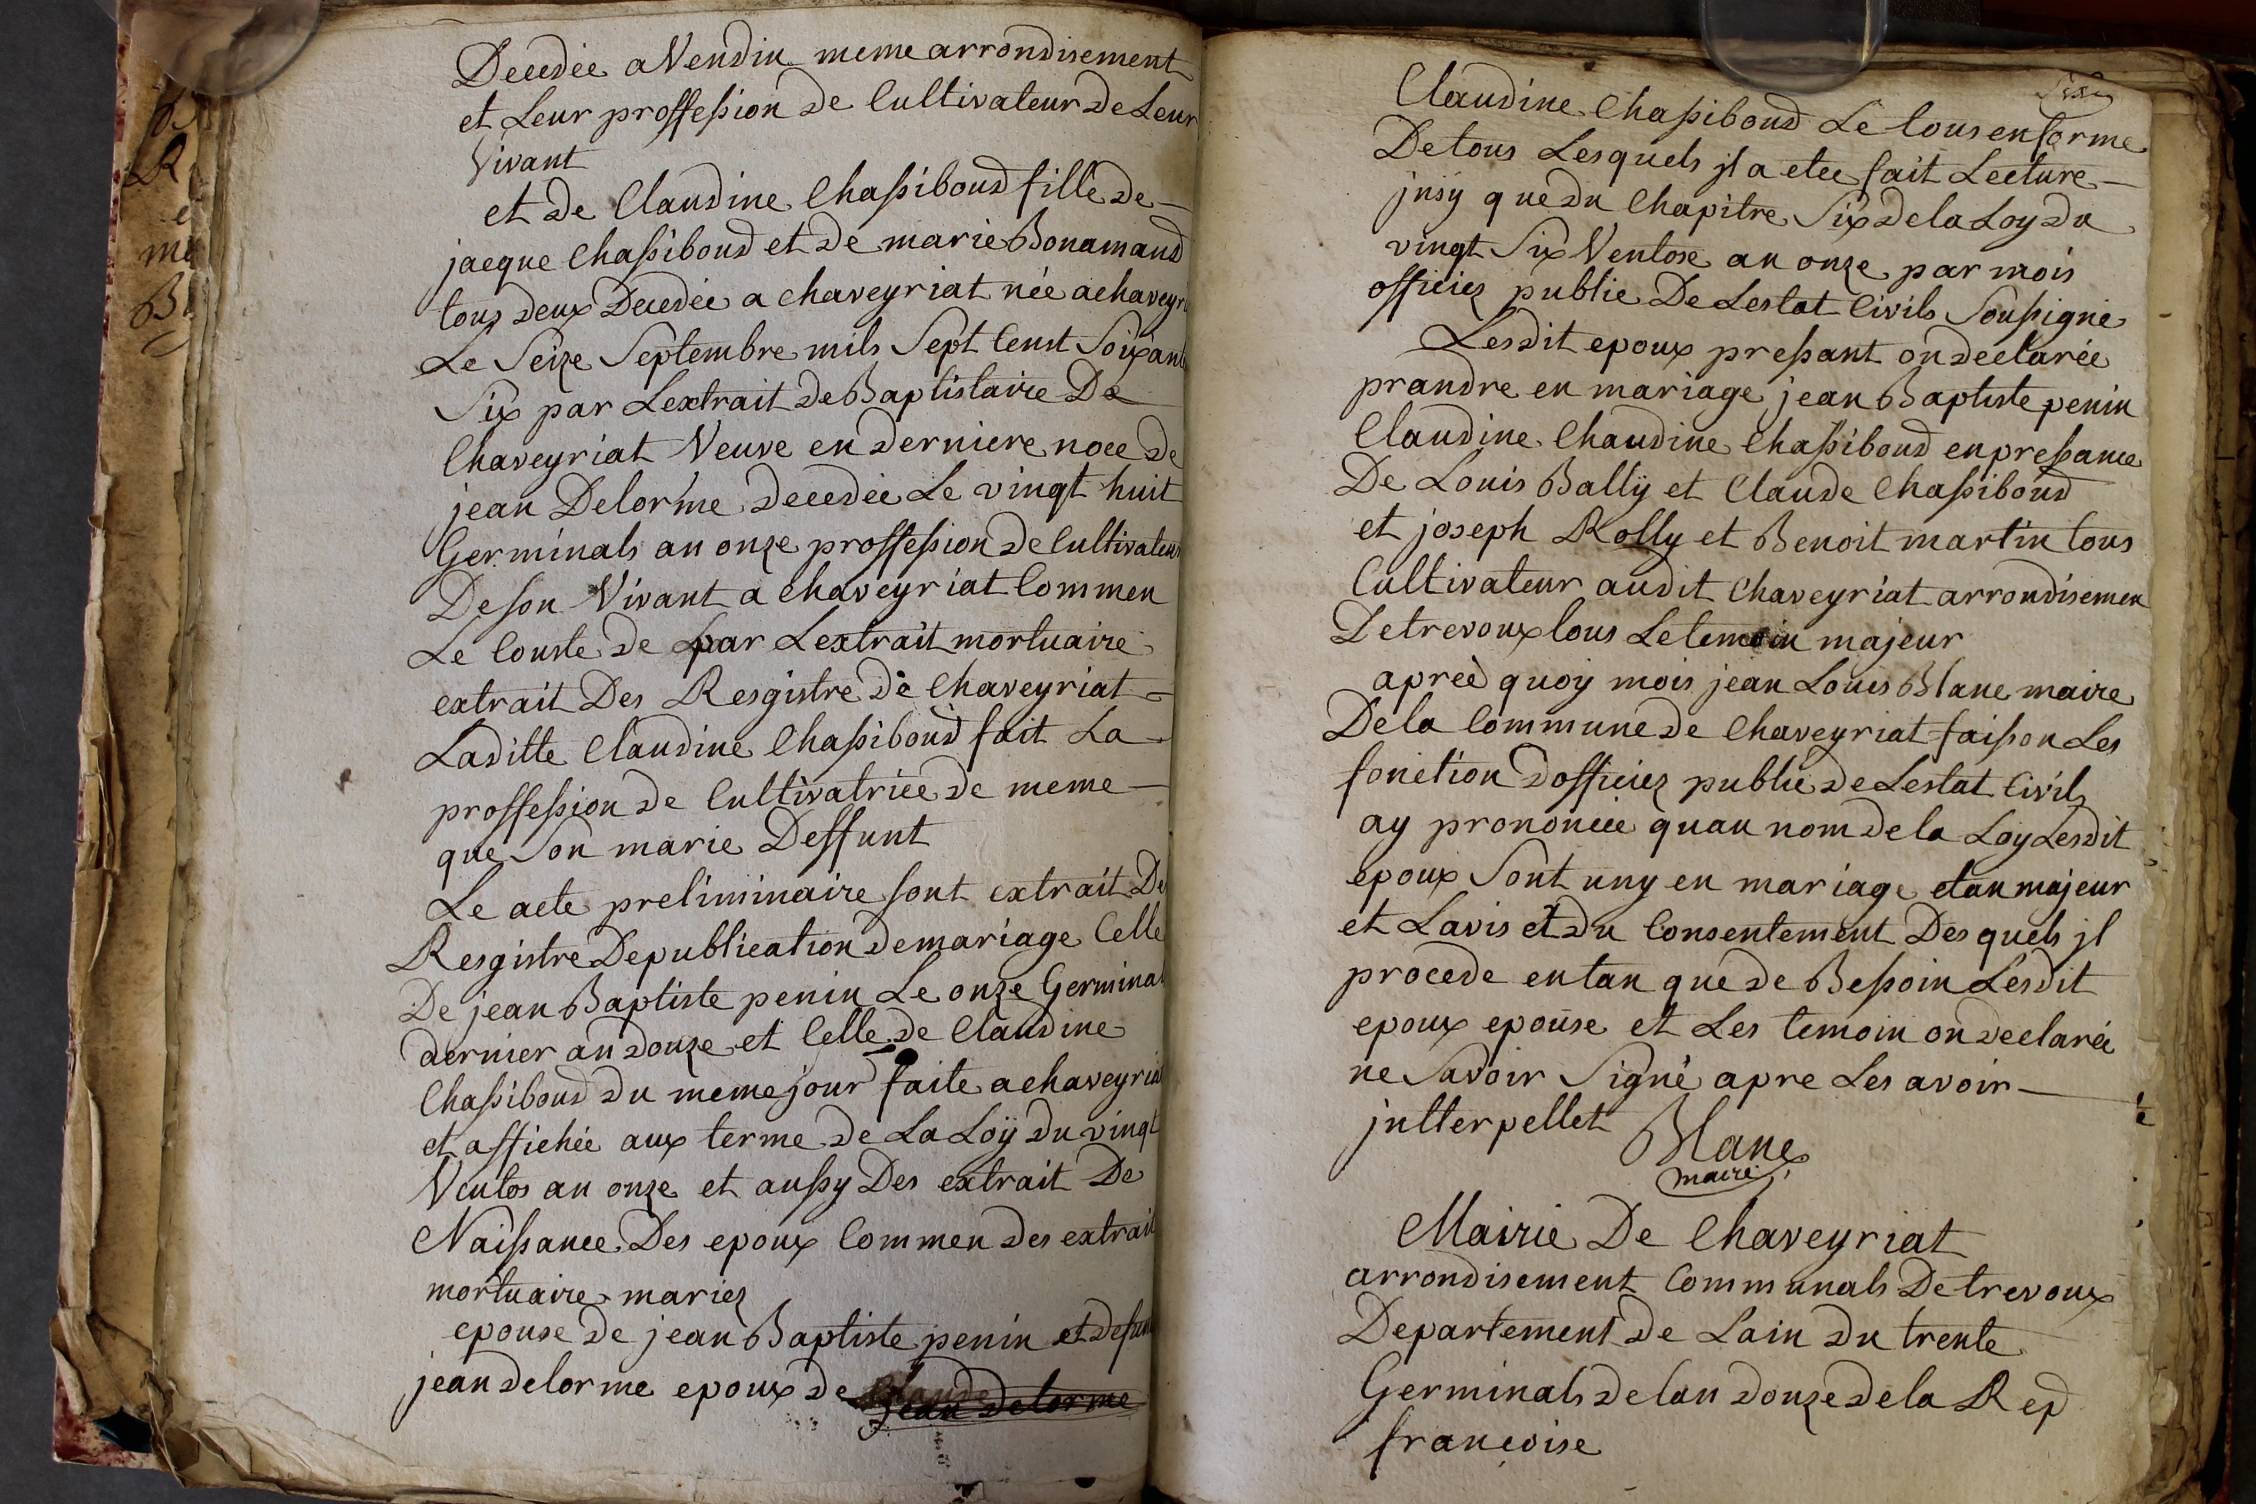 Decedée a Vendin meme arrondisement
et Leur proffession de Cultivateur de Leur
Vivant
et de Claudine Chassiboud fille de
jacque Chassiboud et de marie Bonamand
tous deux Decedée a chaveyriat née a chaveyri
Le Seize Septembre mils Sept Cent Soixante
Six par Lextrait de Baptistaire De
Chaveyriat Veuve en derniere noce de
jean Delorme decedée Le vingt huit
Germinals an onze proffession de Cultivateur
De son Vivant a chaveyriat Commen
Le Conste de par Lextrait mortuaire
extrait Des Resgistre de Chaveyriat
Laditte Claudine Chassiboud fait La
proffession de Cultivatrice de meme
que Son marie Deffunt
Le acte preliminaire sont extrait De
Resgistre De publication de mariage Celle
De jean Baptiste penin Le onze Germinal
dernier an douze et Celle de Claudine
Chassiboud du meme jour faite a chaveyriat
et affichée aux terme de La Loÿ du vingt
Ventos an onze et aussy Des extrait De
Naissance Des epoux Commen des extrait
mortuaire mariez
epouse de jean Baptiste penin et defunt
jean delorme epoux de Claude
jean Delorme
Claudine Chassiboud Le tous en forme
De tous Lesquels jl a etee fait Lecture
jnsy que du Chapitre Six de la Loy du
vingt Six Ventose an onze par mois
officiez public De Lestat Civils Soussigné
Lesdit epoux pressant on declarée
prandre en mariage jean Baptiste penin
Claudine Chaudine Chassiboud en pressance
De Louis Ballÿ et Claude Chassiboud
et joseph Rolly et Benoit martin tous
Cultivateur audit Chaveyriat arrondisemen
De trevoux tous Le temoin majeur
apreè quoy mois jean Louis Blanc maire
De la Commune de Chaveyriat faisson Les
fonction dofficiez public de Lestat Civil
ay prononcée quau nom de la Loy Lesdit
epoux Sont uny en mariage etan majeur
et Lavis et du Consentement Des quels jl
procede entan que de Bessoin Lesdit
epoux epouse et Les temoin on declarée
ne Savoir Signé apre Les avoir
jntterpellet
Blanc
maire
Mairie De Chaveyriat
arrondisement Communals De trevoux
Departement de Lain du trente
Germinals de lan douze de la Rep
francoise